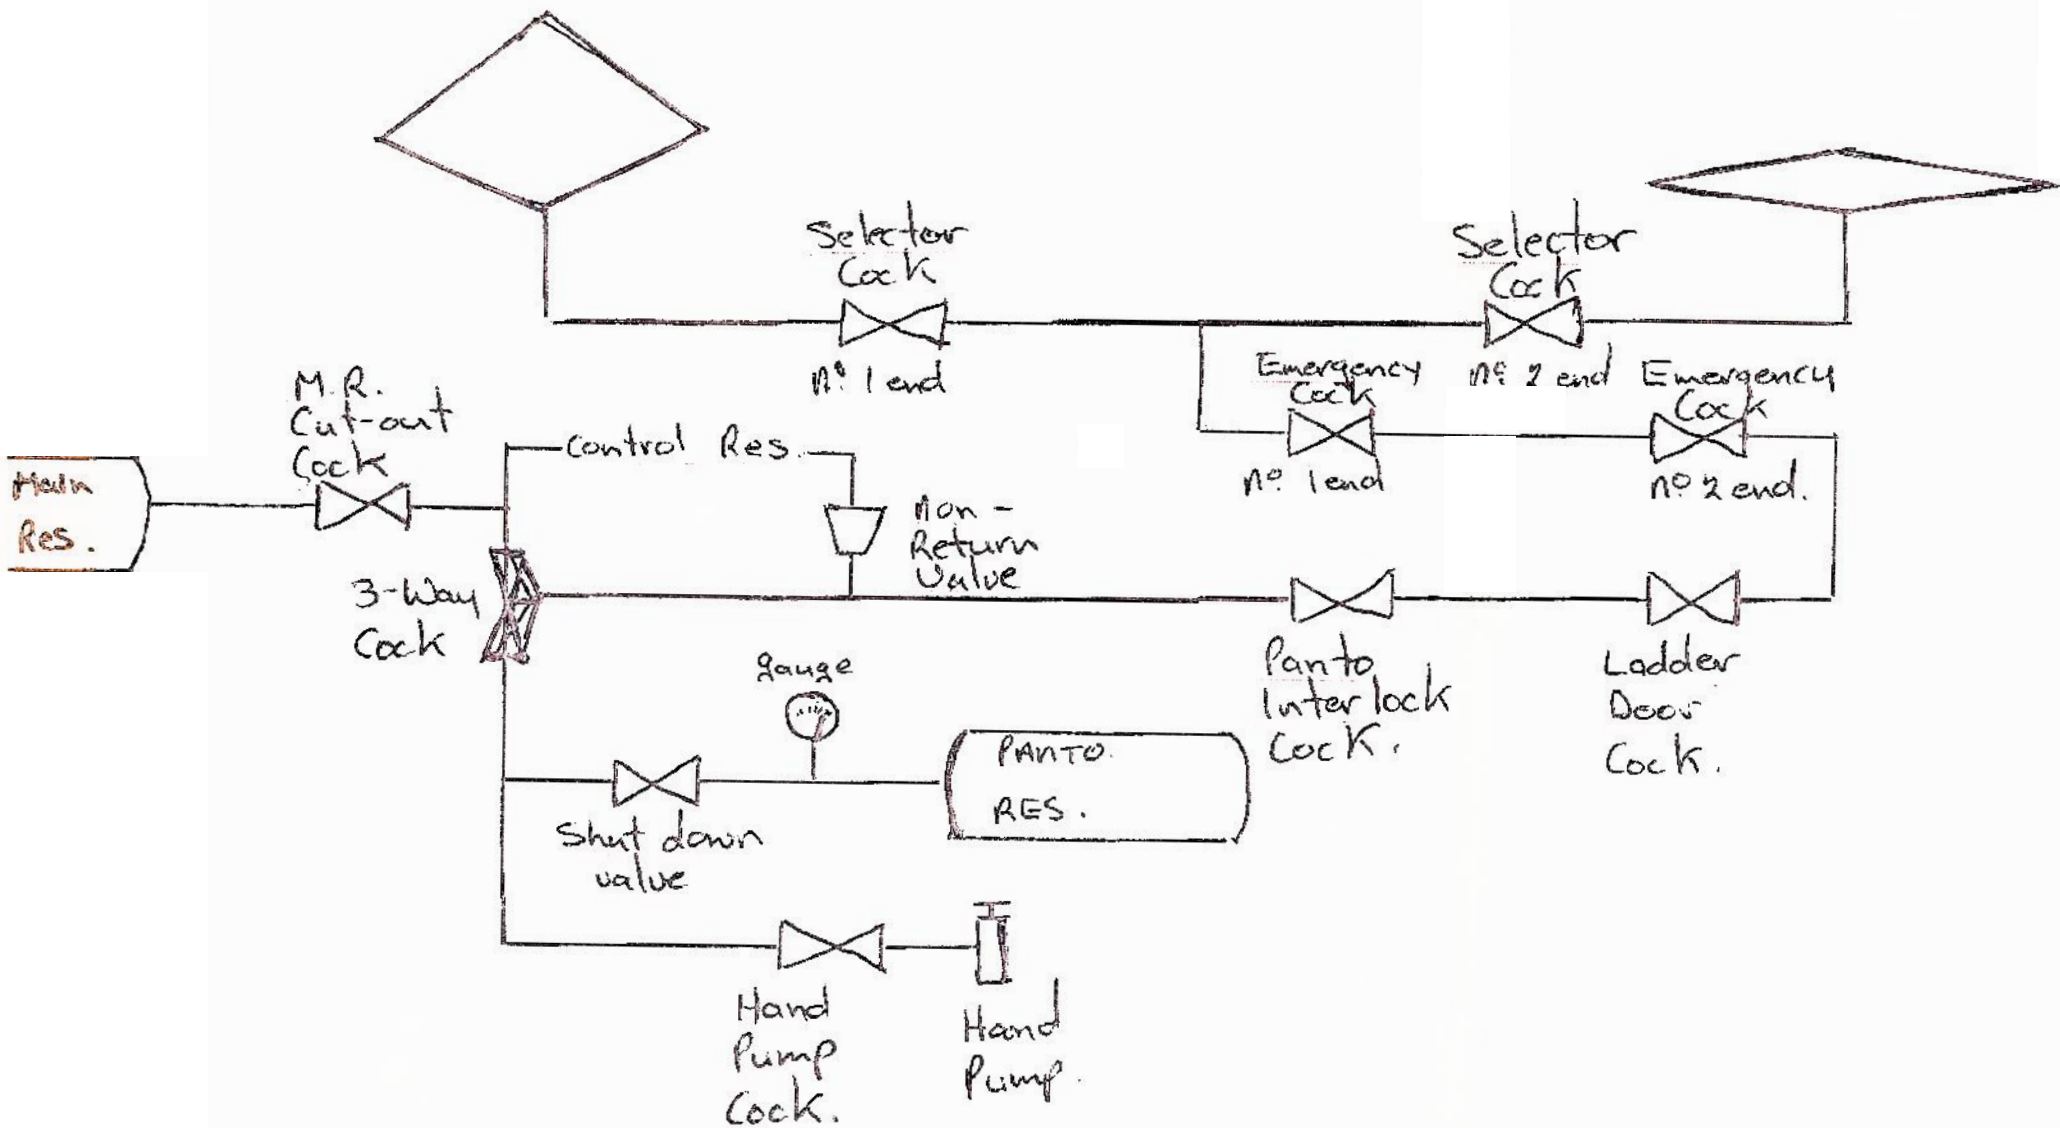 Selector
Cock
nº 1 end
Selector
Cock
nº 2 end
Emergency
Cock
nº 1 end
Emergency
Cock
nº 2 end.
M.R.
Cut-out
Cock
Main
Res.
Control Res.
Non-
Return
Valve
3-Way
Cock
Panto
Interlock
Cock.
Ladder
Door
Cock.
gauge
PANTO.
RES.
Shut down
valve
Hand
Pump
Cock.
Hand
Pump.